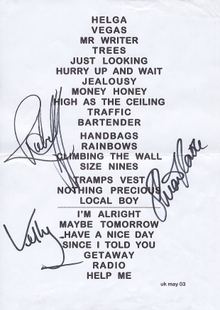 HELGA
VEGAS
MR WRITER
TREES
JUST LOOKING
HURRY UP AND WAIT
JEALOUSY
MONEY HONEY
HIGH AS THE CEILING
TRAFFIC
BARTENDER
HANDBAGS
RAINBOWS
CLIMBING THE WALL
SIZE NINES
TRAMPS VEST
NOTHING PRECIOUS
LOCAL BOY
I'M ALRIGHT
MAYBE TOMORROW
HAVE A NICE DAY
SINCE I TOLD YOU
GETAWAY
RADIO
HELP ME
Kelly
uk may 03